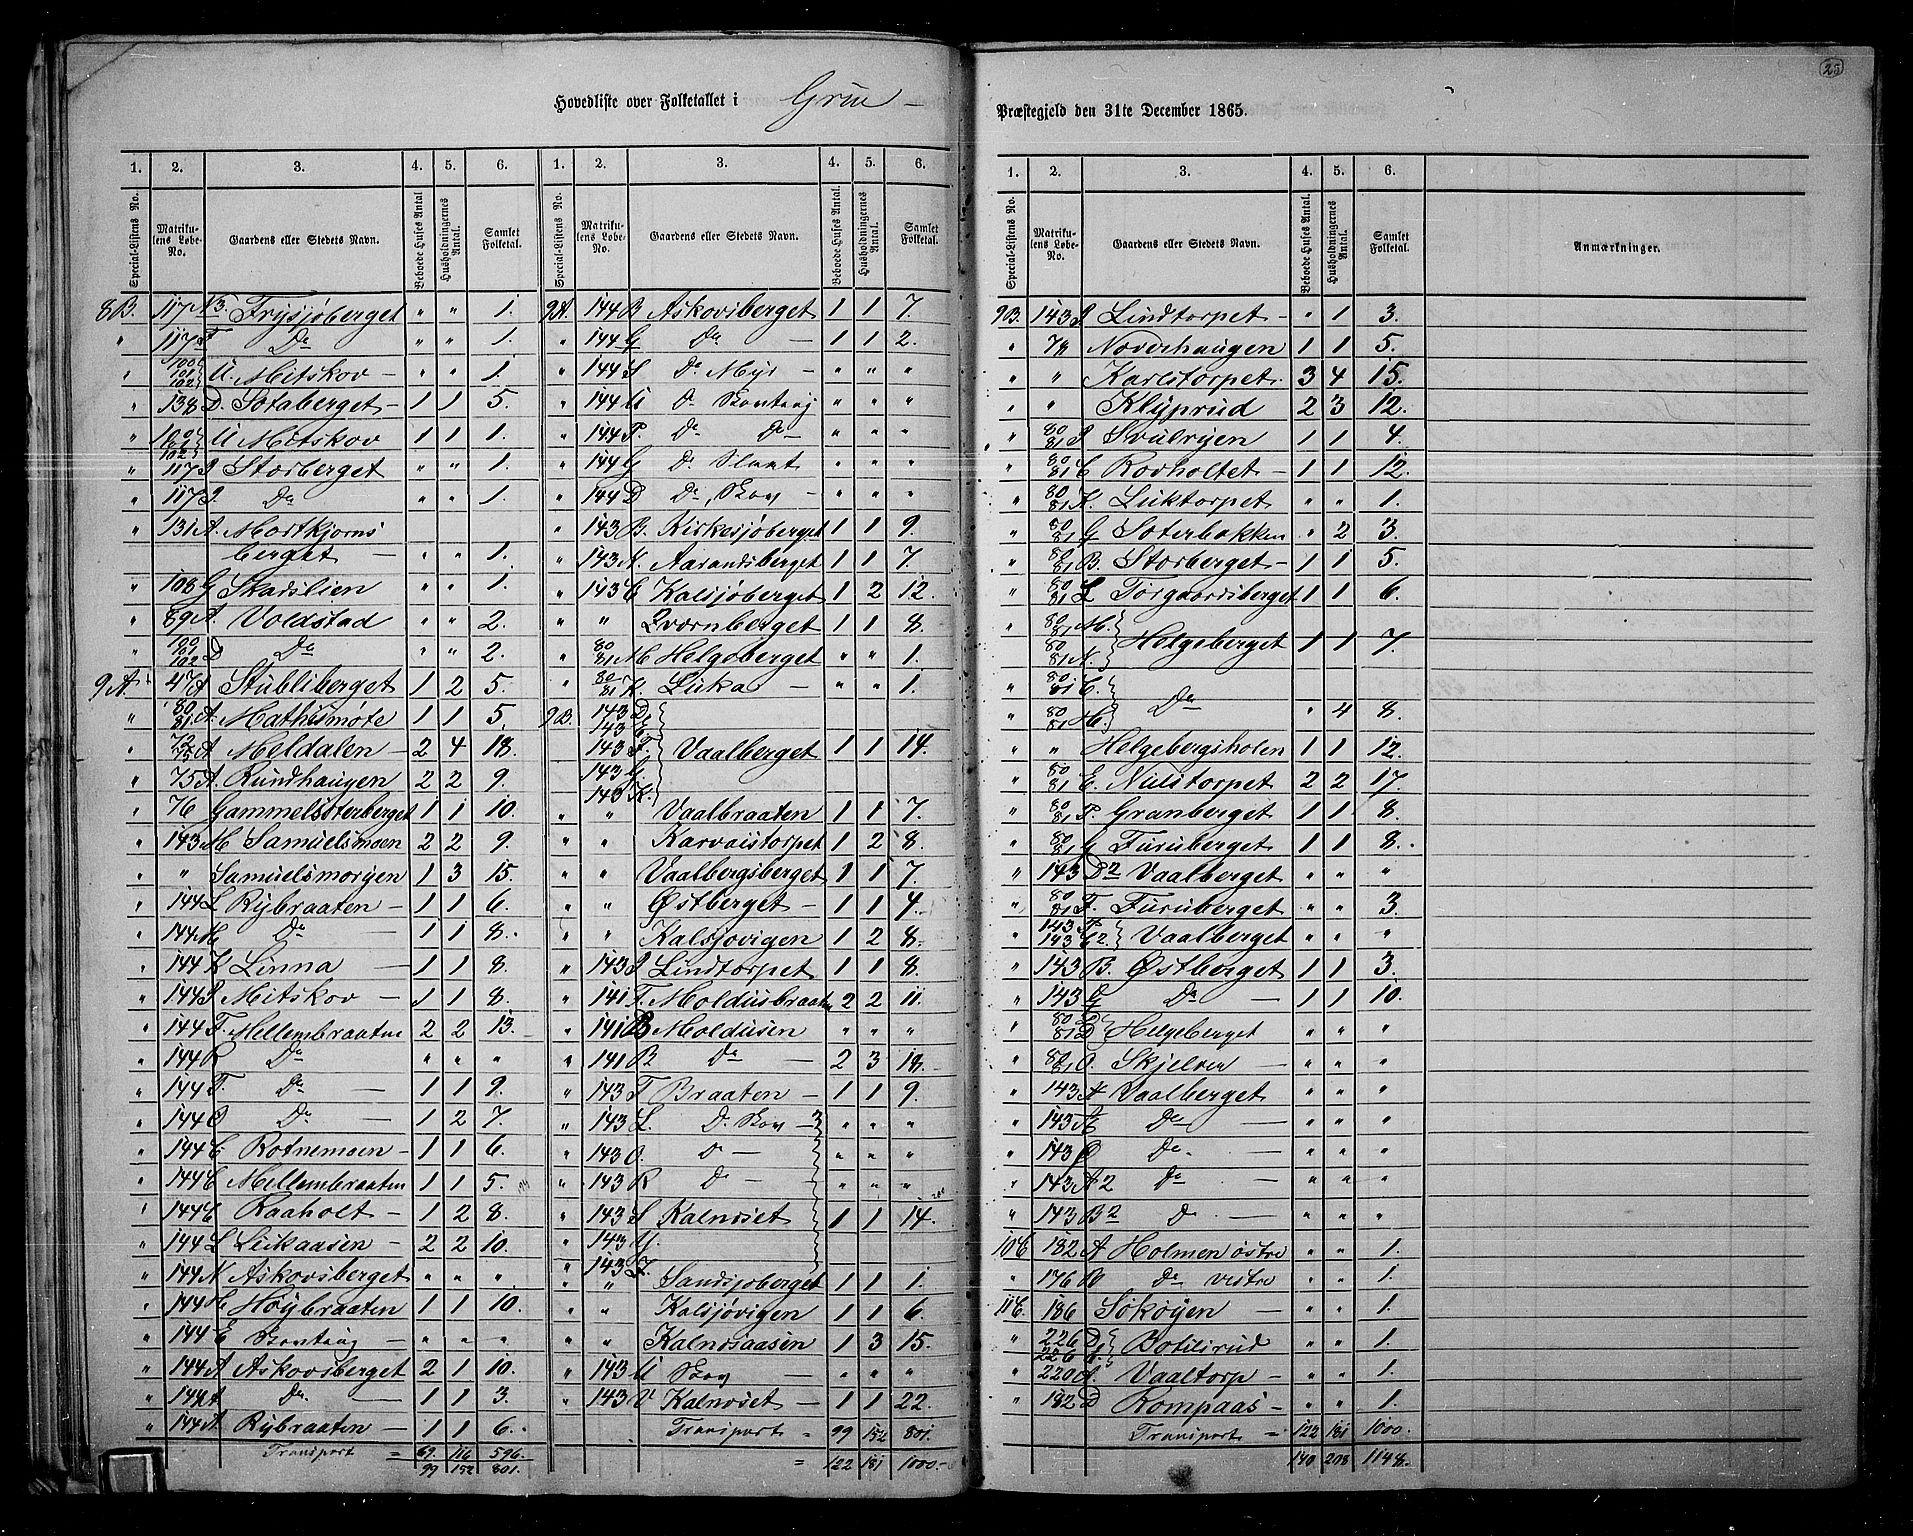 25
Hovedliste over Folketallet i Grue –
Præstegjeld den 31te December 1865.
1. 2. 3. 4. 5. 6. 1. 2. 3. 4. 5. 6.
Special-Listens No. Matrikulens Løbe-No. Gaardens eller Stedets Navn. Beboede Huses Antal. Husholdningernes Antal. Samlet Folketal. Special-Listens No. Matrikulens Løbe-No. Gaardens eller Stedets Navn. Beboede Huses Antal. Husholdningernes Antal. Samlet Folketal.
8B. 117 N3. Frysjøberget " " 1.
" 117 F Do " " 1.
" 100 101 102 U. Mitskov – " " 1.
" 138 D. Sotaberget – 1 1 5.
" 100 101 102 U Mitskov 1 1 1.
" 117 I Storberget " " 1.
" 117 I. Do " " 1.
" 131 A. Mortkjerns
berget – " " 1.
" 108 G Skadslien " " 1.
" 89 A. Voldstad " " 2.
" 100 101 102 D Do " " 2.
9A. 47 A Stubliberget 1 2 5.
" 80 81 A. Mathismøte 1 1 5.
" 72 73 A Meldalen – 2 4 18.
" 75 A. Rundhaugen 2 2 9.
" 76 Gammelsæterberget 1 1 10.
" 143 M Samuelsmoen 2 2 9.
" " Samuelsmoryen 1 3 15.
" 144 L Rybraaten – 1 1 6.
" 144 M Do – 1 1 8.
" 144 K Linna – 1 1 8.
" 144 P. Mitskov – 1 1 8.
" 144 F. Mellembraaten 2 2 13.
" 144 R Do " " "
" 144 T. Do – 1 1 9.
" 144 O Do – 1 2 7.
" 144 C. Rotnemoen – 1 1 6.
" 144 C Mellembraaten 1 1 5.
" 144 C Raaholt – 1 2 8.
" 144 L Leikaasen – 2 2 10.
" 144 N Askovsberget " " "
" 144 H Høybraaten 1 1 10.
" 144 E – " " "
" 144 A Askovsberget 2 1 10.
" 144 A Do – 1 1 3.
" 144 A Rybraaten – 1 1 6.
Transport = 69. 116 596.
99 152 801.
9A. 144 B Askovsberget 1 1 7.
" 144 G Do – 1 1 2.
" 144 S Do Myr – " " "
" 144 U Do " " "
" 144 P. Do Do – " " "
" 144 G Do " " "
" 144 D Do Skov – " " "
" 143 B. Kirkesjøberget 1 1 9.
" 143 N. Aarandsberget 1 1 7.
" 143 C Kalsjøberget 1 2 12.
" " Qvernberget 1 1 8.
" 80 81 M Helgeberget " " 1.
" 80 81 K. Luka – " " 1.
9B. 143 D.
143 E.
143 F. Vaalberget 1 1 14.
143 G.
143 K.
" " Vaalbraaten 1 1 7.
" " Karvaistorpet 1 2 8.
" " Vaalbergsberget 1 1 7.
" " Østberget – 1 1 4.
" " Kalsjovigen 1 2 8.
" 143 I Lindtorpet – 1 1 8.
" 141 F. Moldusbraaten 2 2 11.
" 141 B Moldusen " " "
" 141 B Do – 2 3 18.
" 143 T Braaten – 1 1 9.
" 143 L. Do Skov – " " "
" 143 O. Do – " " "
" 143 R Do – " " "
" 143 S Kalnæset 1 1 14.
" 143 Y.
" 143 Z.
" " Sandsjoberget 1 1 1.
" " Kalsjøvigen 1 1 6.
" " Kalnæsaasen 1 3 15.
" 143 U Skov – " " "
" 143 V Kalnæset – 1 1 22.
Transport = 99 152 801.
= 122 181 1000.
1. 2. 3. 4. 5. 6.
Special-Listens No. Matrikulens Løbe-No. Gaardens eller Stedets Navn. Beboede Huses Antal. Husholdningernes Antal. Samlet Folketal. Anmærkninger.
9B. 143 I. Lindtorpet – " 1 3.
" 78 Noverhaugen 1 1 5.
" " Karlstorpet. 3 4 15.
" " Klyprud 2 3 12.
" 80 81 I Svulryen 1 1 4.
" 80 81 C Rovholtet – 1 1 12.
" 80 81 K. Luktorpet " " 1.
" 80 81 G Soterbakken " 2 3.
" 80 81 B. Storberget – 1 1 5.
" 80 81 L Torgaardsberget 1 1 6.
" 80 81 M.
80 81 N. Helgeberget 1 1 7.
" 80 81 C.
" 80 81 H. Do " 4 8.
" " Helgebergsholen 1 1 12.
" 80 81 E. Nulstorpet 2 2 17.
" 80 81 P. Granberget 1 1 8.
" 80 81 G Furuberget 1 1 8.
" 143 D2 Vaalberget " " "
" 80 81 F. Furuberget " " 3.
" 143 P.
143 C2. Vaalberget " " "
" 143 B. Østberget 1 1 3.
" 143 G Do – 1 1 10.
" 80 81 D Helgeberget " " "
" 80 81 O. Skjelven " " "
" 143 H Vaalberget " " "
" 143 Æ Do – " " "
" 143 Ø Do – " " "
" 143 A2 Do – " " "
" 143 B2 Do – " " "
10C 182 A Holmen østre " " 1.
" 176 B Do vestre " " 1.
11C. 186 Søkøyen – " " 1.
" 226 D.
226 E. Botilsrud " " 1.
" 220 A. Vaaltorp – " " 1.
" 182 D Rompaas – " " 1.
Transport = 122 181 1000.
140 208 1148.